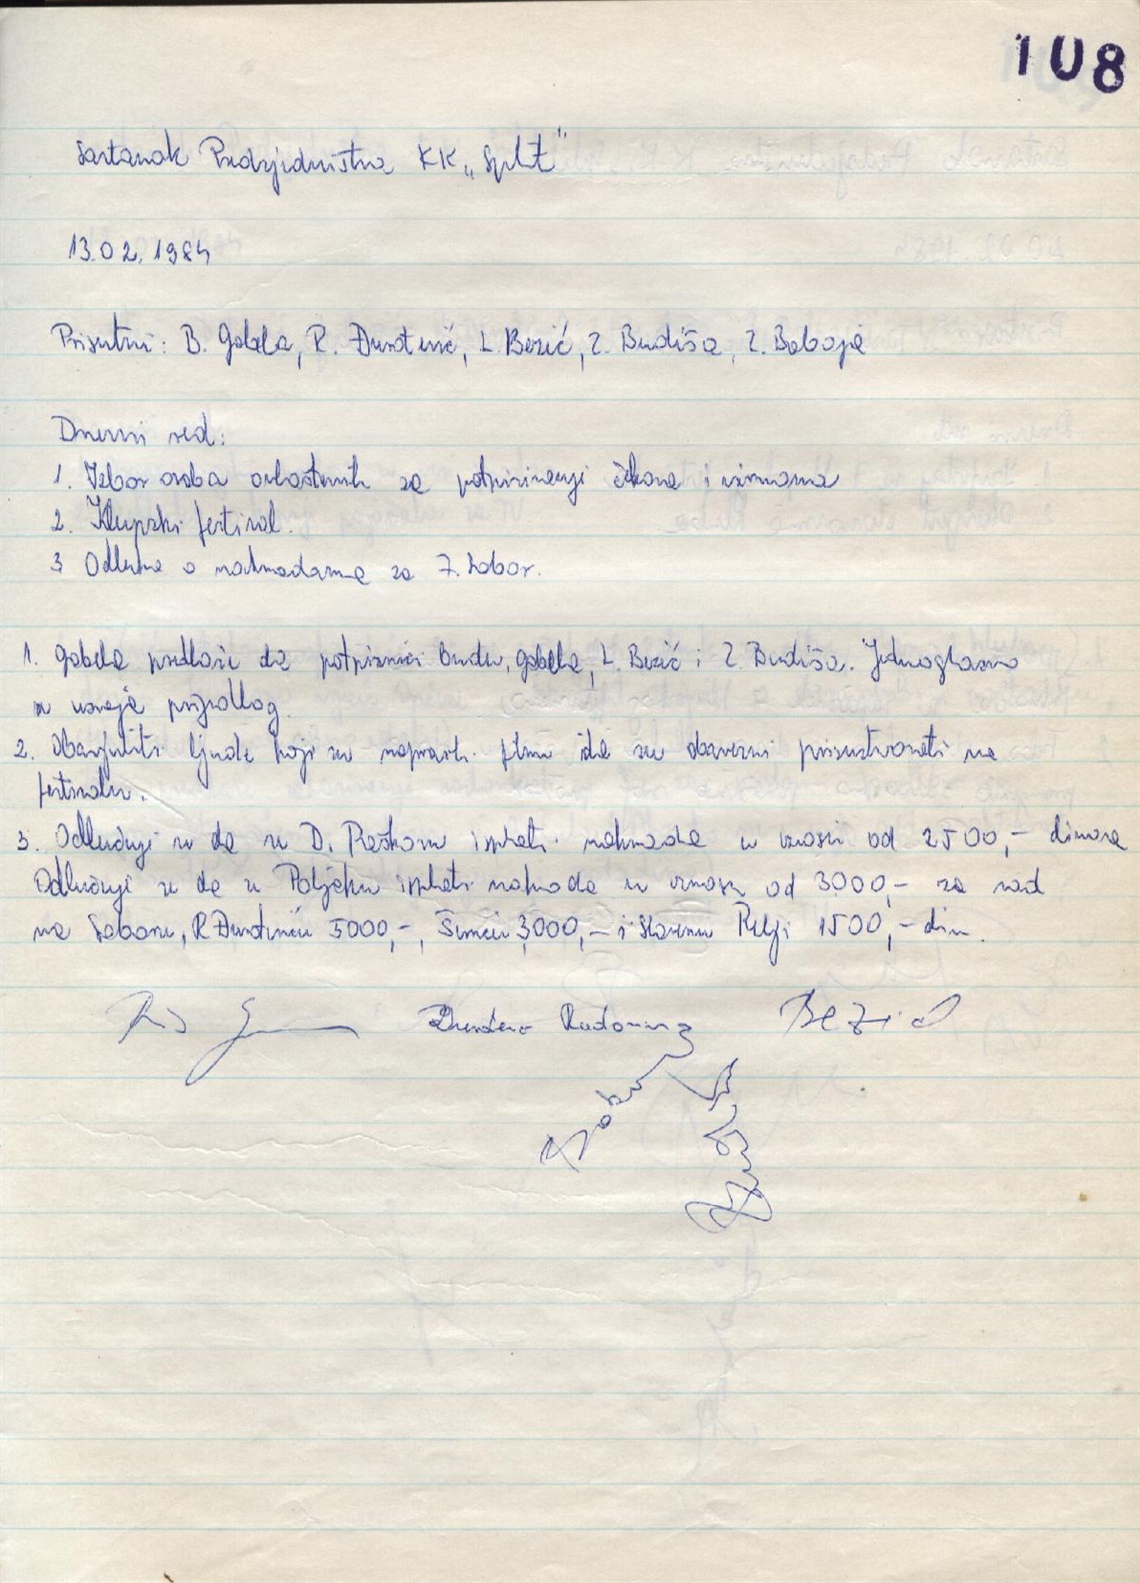 108
Sastanak Predsjedništva KK „Split"
13.02.1984
Prisutni: B. Gabela, R. Đundenić, L. Bezić, Z. Budiša, Z. Baboje
Dnevni red:
1. Izbor osoba ovlaštenih za potpisivanje čekova i virmana
2. Klupski festival.
3 Odluka o naknadama za 7. Sabor.
1. Gabela predlaže da potpisnici budu, Gabela, L. Bezić i Z. Budiša. Jednoglasno
se usvaja prijedlog.
2. Obavjestiti ljude koji su napravili film da su obavezni prisustvovati na
festivalu.
3. Odlučuje se da se D. Raškovu isplati naknada u iznosu od 2500,- dinara
Odlučuje se da se Poljaku isplati naknada u iznosu od 3000,- za rad
na Saboru, R. 5000,-, 3000,- i Slavenu Relji 1500,- din.
Bezić